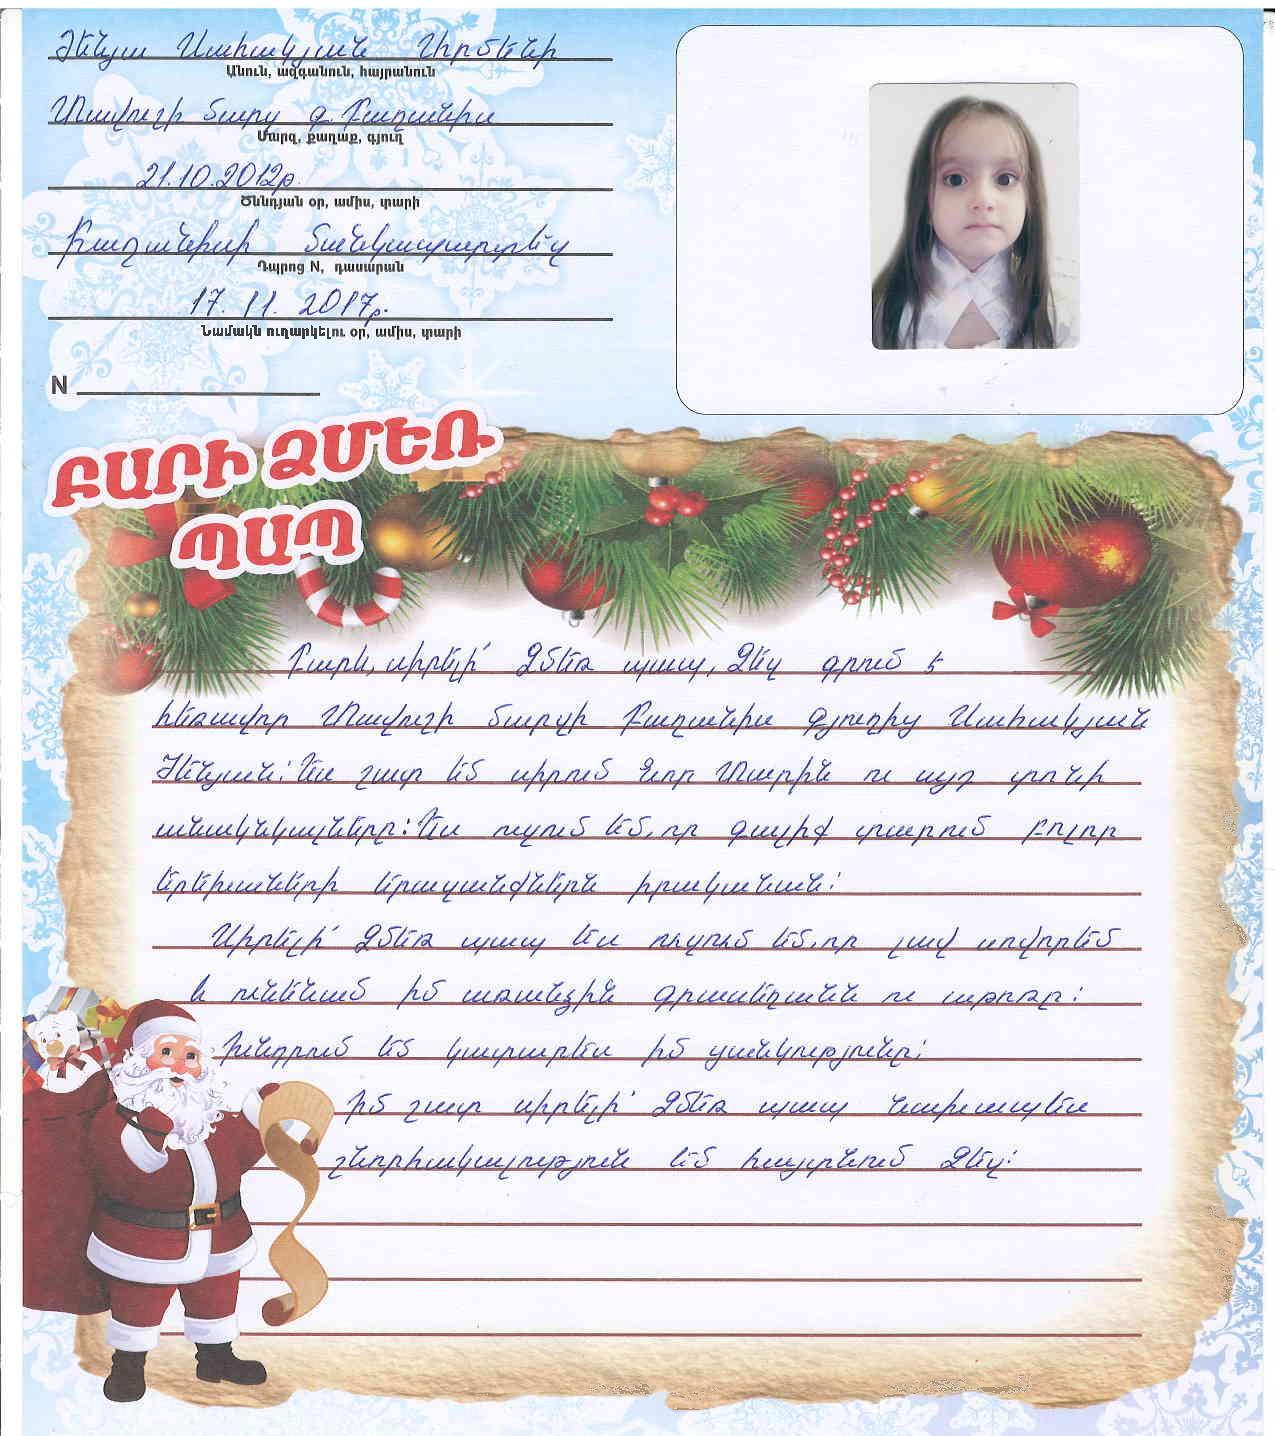 Ժենյա Սահակյան Արմենի
Անուն, ազգանուն, հայրանուն
Տավուշի մարզ գ. Բաղանիս
Մարզ, քաղաք, գյուղ
21.10.2012թ.
Ծննդյան օր, ամիս, տարի
Բաղանիսի մանկապարտեզ
Դպրոց N, դասարան
17. 11. 2017թ.
Նամակն ուղարկելու օր, ամիս, տարի
N
ԲԱՐԻ ՁՄԵՌ
ՊԱՊ
Բարև, սիրելի՛ Ձմեռ պապ, Ձեզ գրում է
հեռավոր Տավուշի մարզի Բաղանիս գյուղից Սահակյան
Ժենյան: Ես շատ եմ սիրում Նոր Տարին ու այդ տոնի
անակնկալները: Ես ուզում եմ, որ գալիք տարում բոլոր
երեխաների երազանքներն իրականան:
Սիրելի՛ Ձմեռ պապ ես ուզում եմ, որ լավ սովորեմ
և ունենամ իմ առանձին գրասեղանն ու աթոռը:
Խնդրում եմ կատարես իմ ցանկությունը:
Իմ շատ սիրելի՛ Ձմեռ պապ նախապես
շնորհակալություն եմ հայտնում Ձեզ: